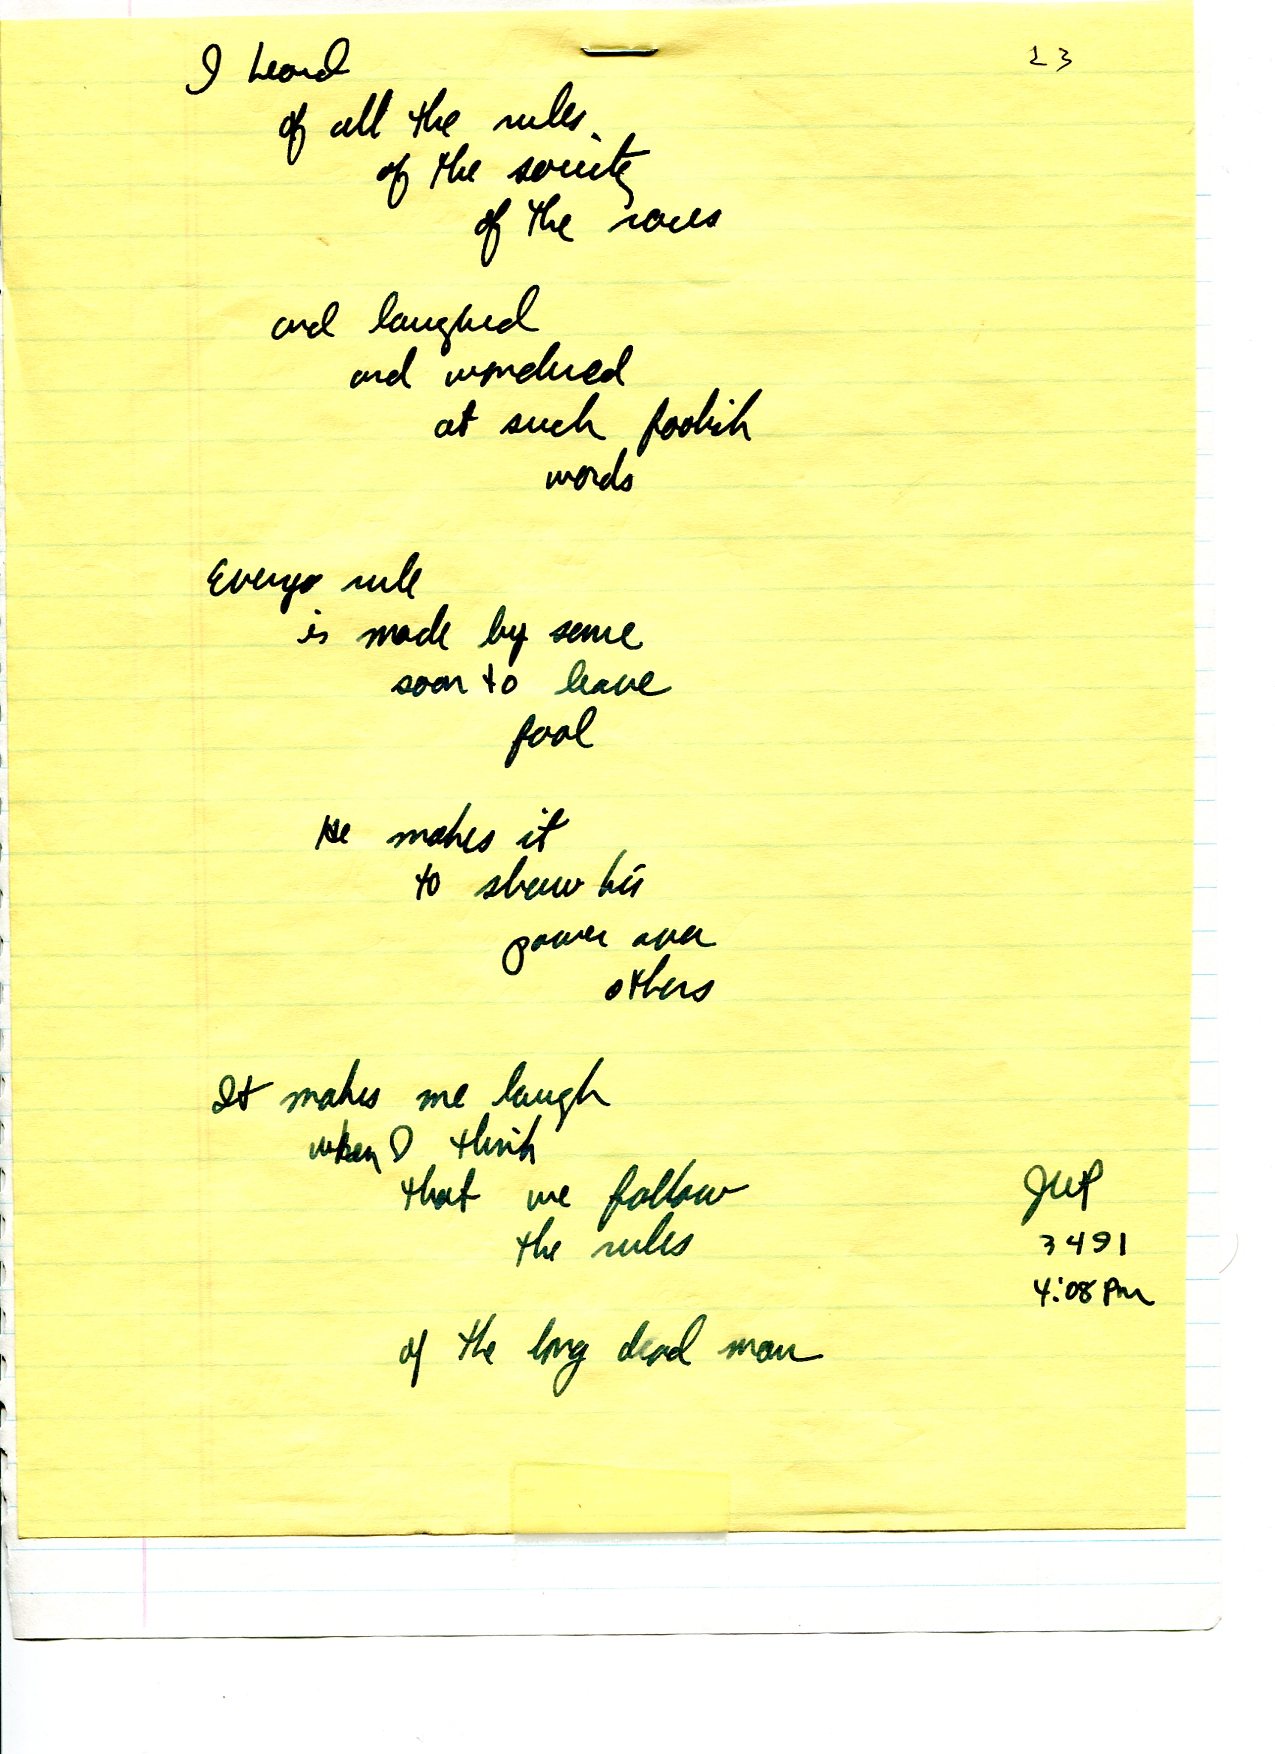 23
I heard
of all the rules
of the society
of the races
and laughed
and wondered
at such foolish
words
Every rule
is made by some
soon to leave
fool
He makes it
to show his
power over
others
It makes me laugh
when I think
that we follow
the rules
of the long dead man
JWP
3491
4:08 PM